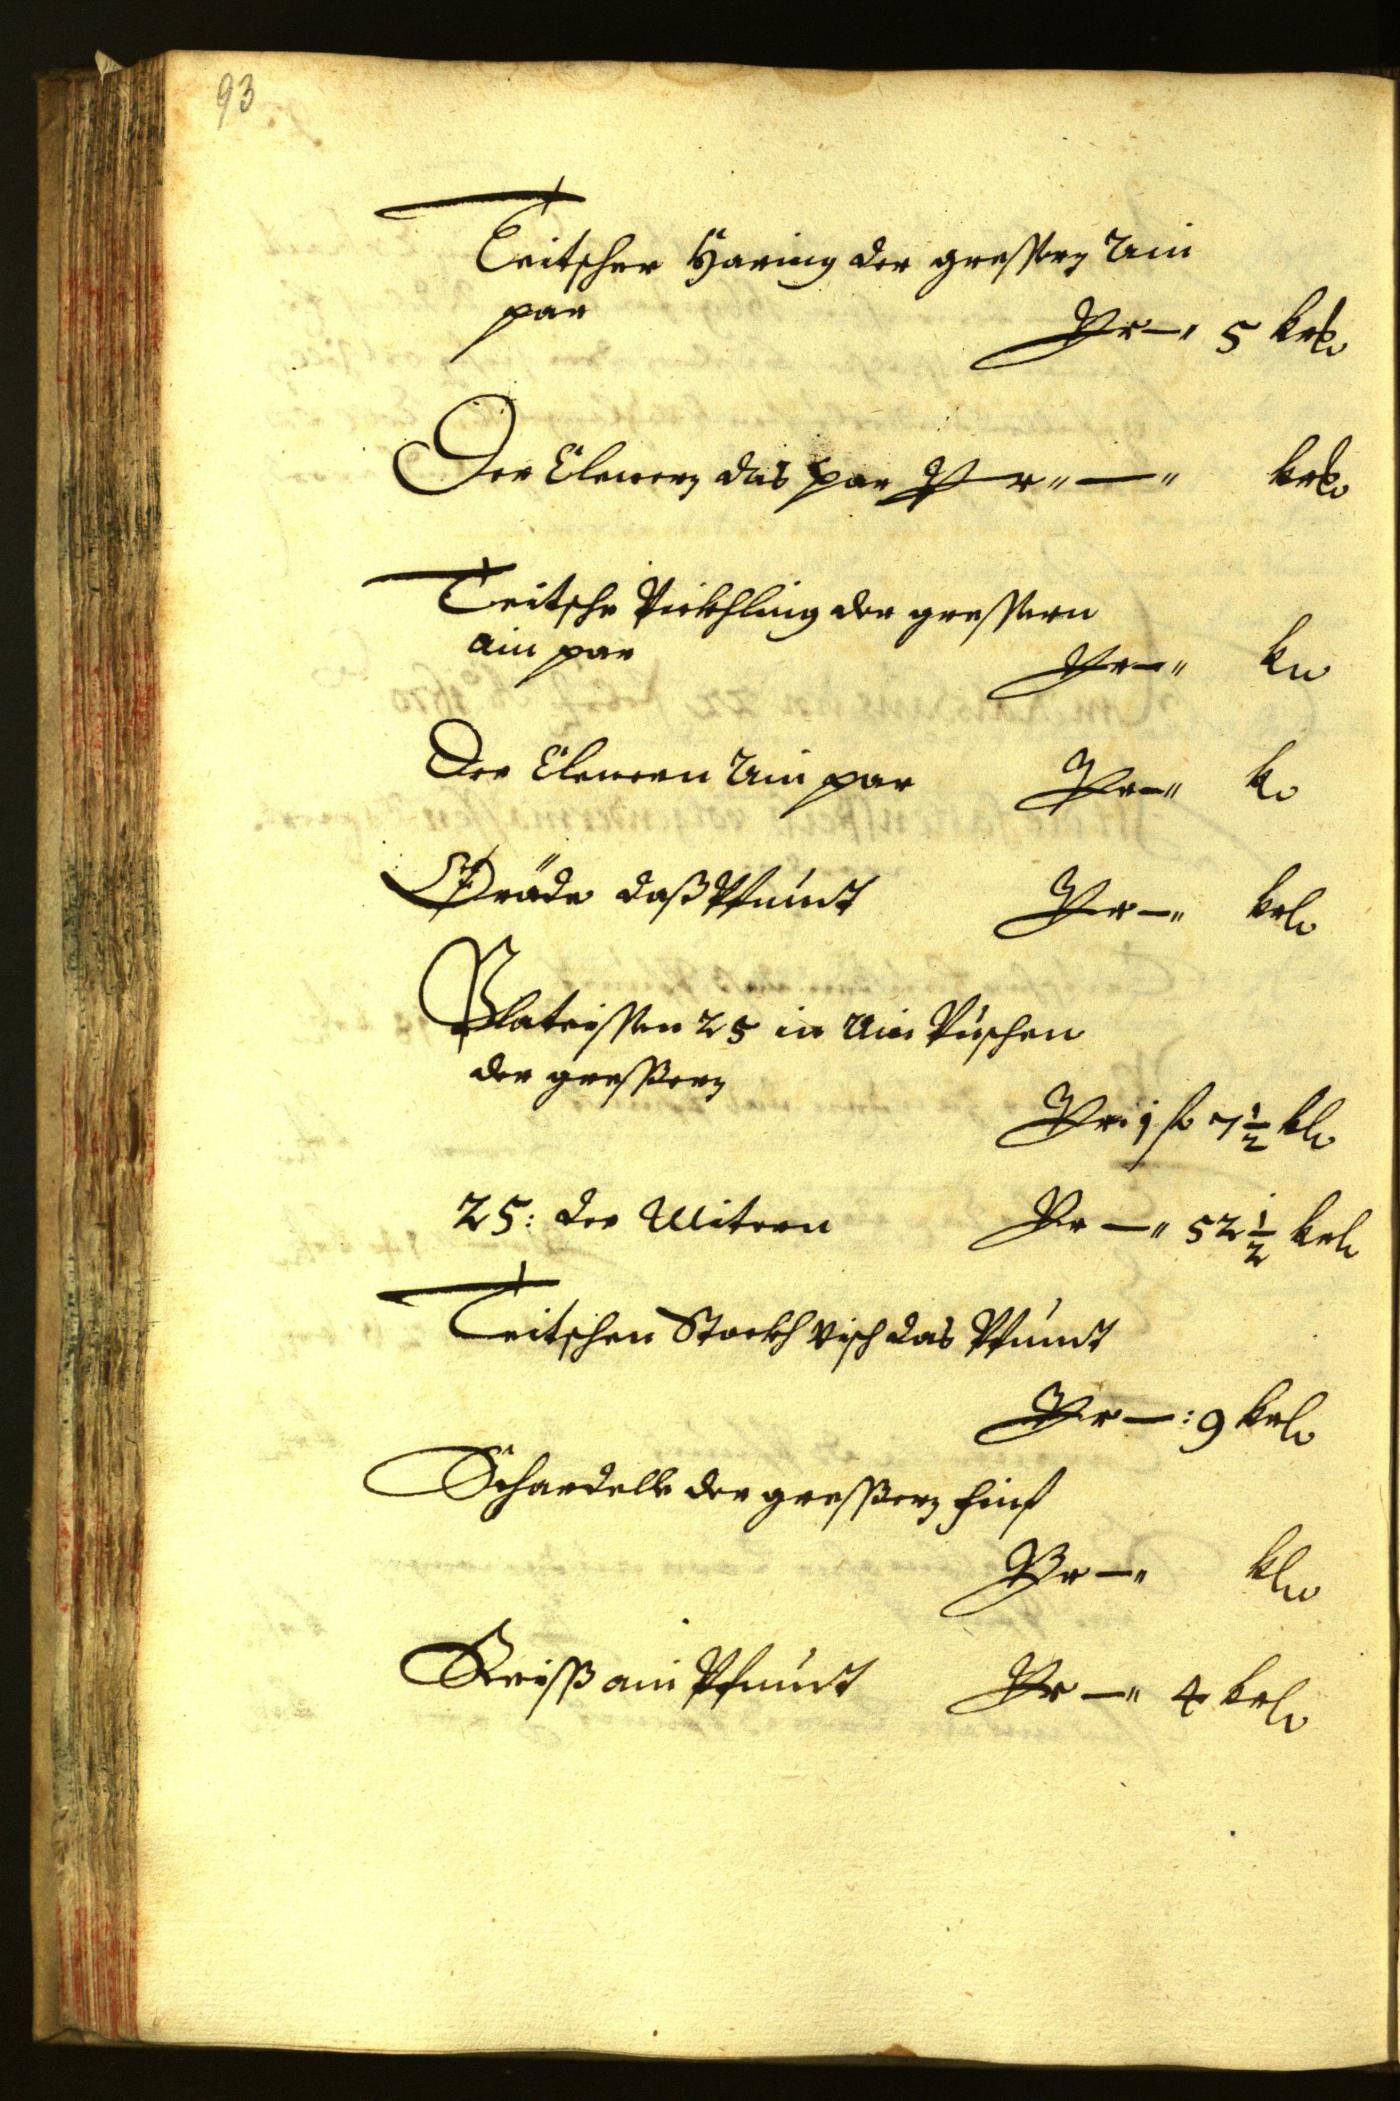 93
Teitscher Häring der gressern Ain
par
Pr — „ 5 kr
Der Clenern das par Pr „ — „ kr
Teitsche Pickhling der gressern
ain par
Pr — „ kr
Der Clenern Ain par Pr — „ kr
Präde daß Pfundt Pr — „ kr
Plateissen 25 in Ain Püschen
der gressern
Pr. 1 fl 7½ kr
25: der Mitern Pr — „ 52½ kr
Teitschen Stockhvisch das Pfundt
Pr — : 9 kr
Schardelle der gressern finf
Pr — „ kr
Reiß ain Pfundt Pr — „ 4 kr